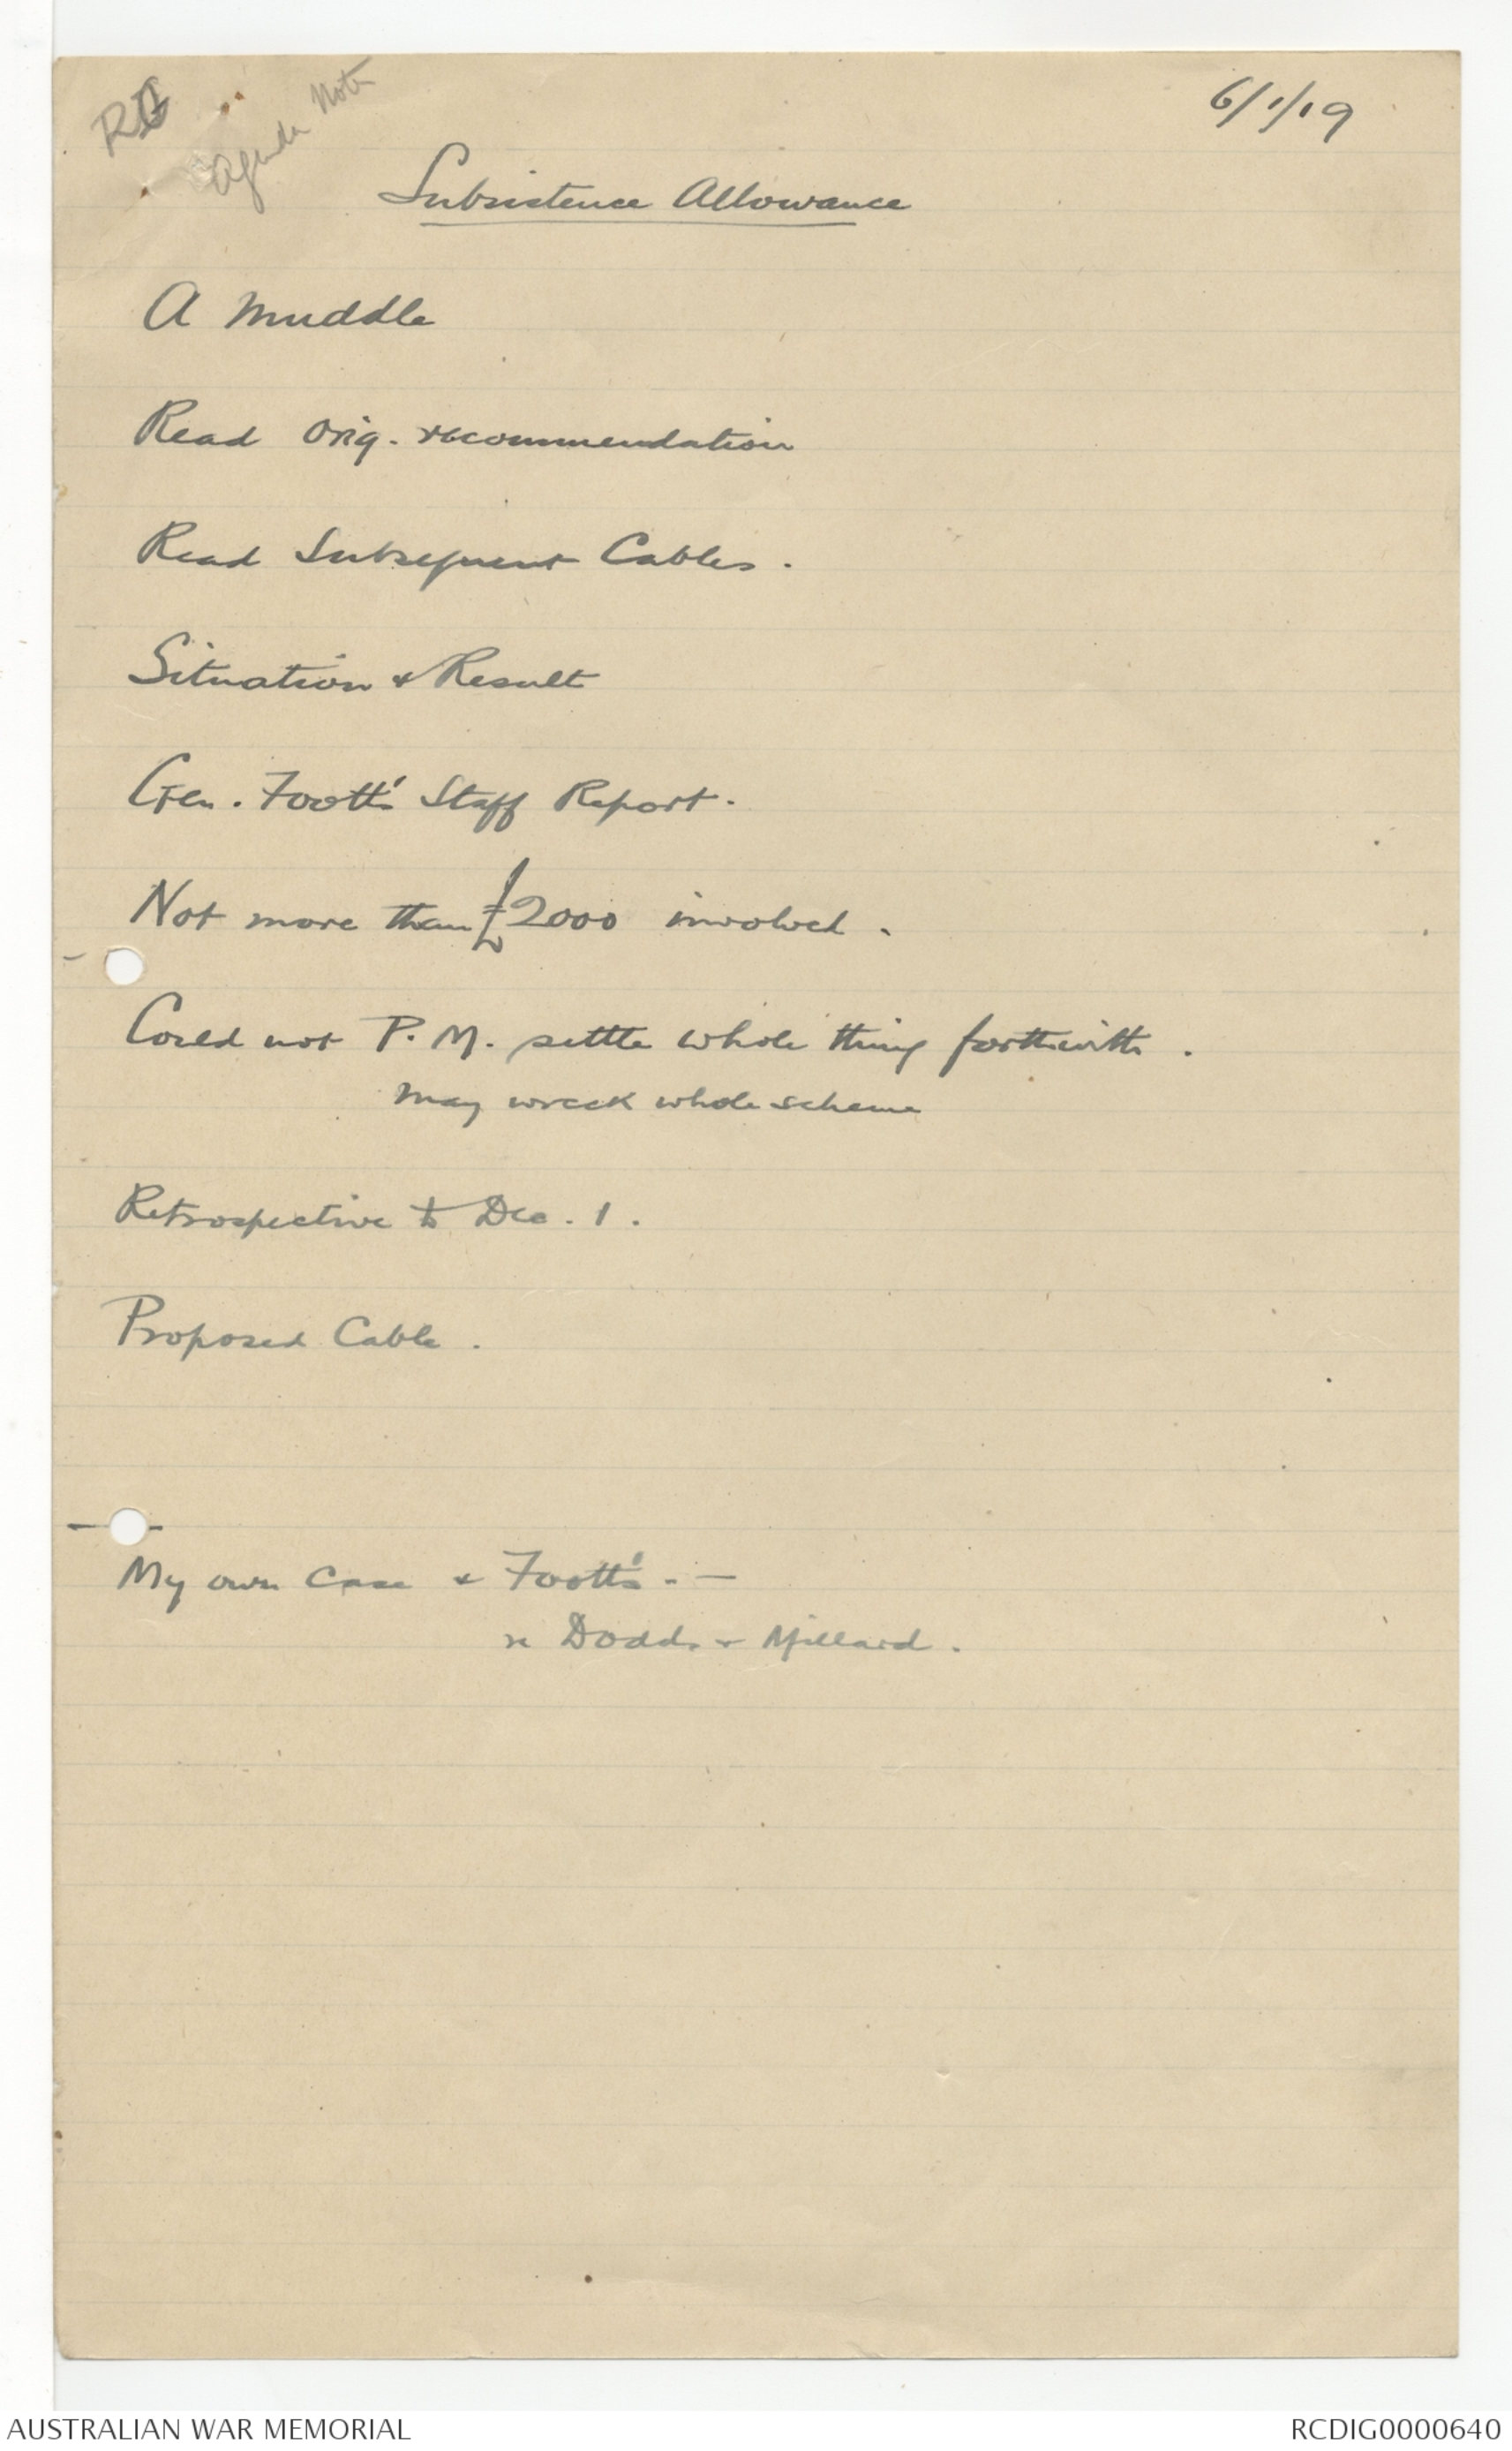 Agenda Note
6/1/19
Subsistence Allowance
A Muddle
Read Orig. recommendation
Read Subsequent Cables.
Situation & Result
Gen. Foott's Staff Report.
Not more than £2000 involved.
Could not P.M. settle whole thing forthwith.
May wreck whole scheme
Retrospective to Dec. 1.
Proposed Cable.
My own case & Foott's. —
Dodds & Millard.
AUSTRALIAN WAR MEMORIAL
RCDIG0000640